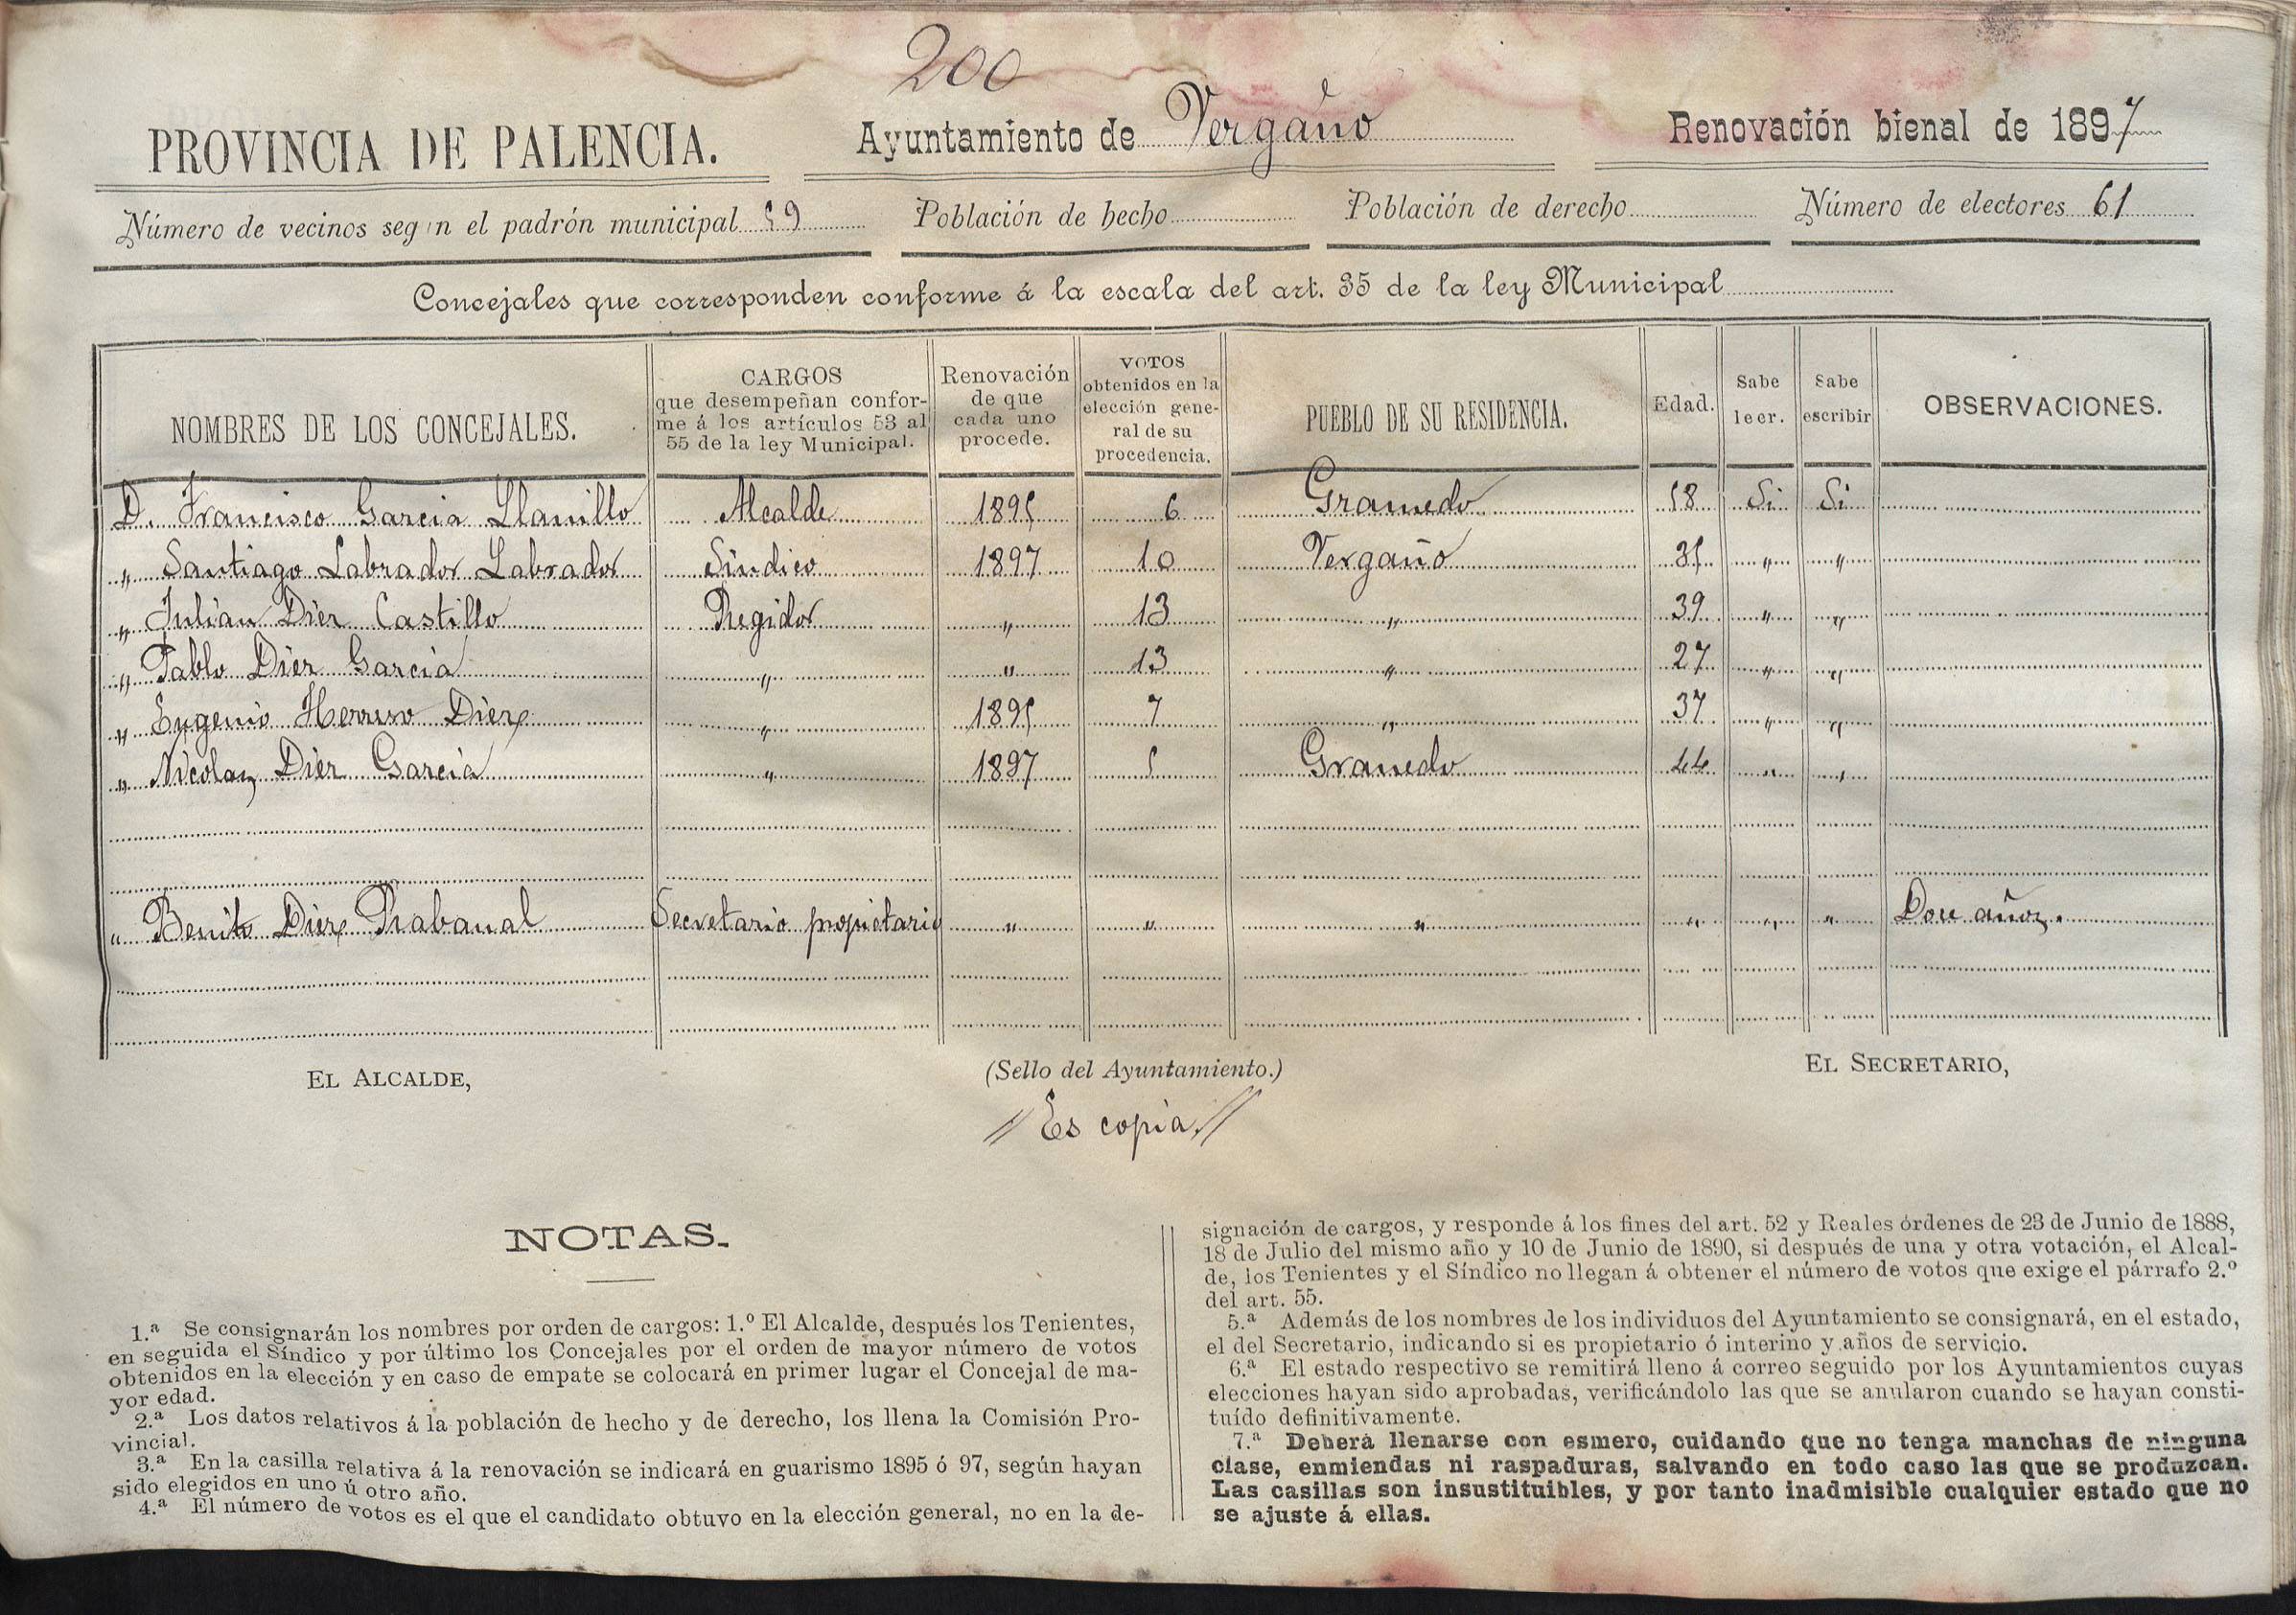 200
PROVINCIA DE PALENCIA. Ayuntamiento de Vergaño Renovación bienal de 1897
Número de vecinos seg n el padrón municipal 59 Población de hecho Población de derecho Número de electores 61
Concejales que corresponden conforme á la escala del art. 35 de la ley Municipal
NOMBRES DE LOS CONCEJALES.
CARGOS
que desempeñan confor-
me á los artículos 53 al
55 de la ley Municipal.
Renovación
de que
cada uno
procede.
VOTOS
obtenidos en la
elección gene-
ral de su
procedencia.
PUEBLO DE SU RESIDENCIA.
Edad.
Sabe
leer.
Sabe
escribir
OBSERVACIONES.
D. Francisco Garcia Llanillo Alcalde 1895 6 Gramedo 58 Si Si
" Santiago Labrador Labrador Sindico 1897 10 Vergaño 35 " "
" Julian Diez Castillo Regidor " 13 " 39 " "
" Pablo Diez Garcia " " 13 " 27 " "
" Eugenio Herrero Diez " 1895 7 " 37 " "
" Nicolas Diez Garcia " 1897 5 Gramedo 44 " "
" Benito Diez Rabanal Secretario propietario " " " " " " Doce años.
EL ALCALDE, (Sello del Ayuntamiento.) EL SECRETARIO,
// Es copia //
NOTAS.
1.ª Se consignarán los nombres por orden de cargos: 1.º El Alcalde, después los Tenientes,
en seguida el Síndico y por último los Concejales por el orden de mayor número de votos
obtenidos en la elección y en caso de empate se colocará en primer lugar el Concejal de ma-
yor edad.
2.ª Los datos relativos á la población de hecho y de derecho, los llena la Comisión Pro-
vincial.
3.ª En la casilla relativa á la renovación se indicará en guarismo 1895 ó 97, según hayan
sido elegidos en uno ú otro año.
4.ª El número de votos es el que el candidato obtuvo en la elección general, no en la de-
signación de cargos, y responde á los fines del art. 52 y Reales órdenes de 23 de Junio de 1888,
18 de Julio del mismo año y 10 de Junio de 1890, si después de una y otra votación, el Alcal-
de, los Tenientes y el Síndico no llegan á obtener el número de votos que exige el párrafo 2.º
del art. 55.
5.ª Además de los nombres de los individuos del Ayuntamiento se consignará, en el estado,
el del Secretario, indicando si es propietario ó interino y años de servicio.
6.ª El estado respectivo se remitirá lleno á correo seguido por los Ayuntamientos cuyas
elecciones hayan sido aprobadas, verificándolo las que se anularon cuando se hayan consti-
tuído definitivamente.
7.ª Deberá llenarse con esmero, cuidando que no tenga manchas de ninguna
clase, enmiendas ni raspaduras, salvando en todo caso las que se produzcan.
Las casillas son insustituibles, y por tanto inadmisible cualquier estado que no
se ajuste á ellas.